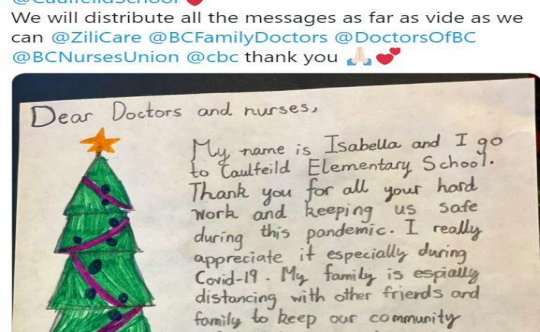 @CaulfeildSchool
We will distribute all the messages as far as vide as we
can @ZiliCare @BCFamilyDoctors @DoctorsOfBC
@BCNursesUnion @cbc thank you 🙏🏻 💕
Dear Doctors and nurses,
My name is Isabella and I go
to Caulfeild Elementary School.
Thank you for all your hard
work and keeping us safe
during this pandemic. I really
appreciate it especially during
Covid-19. My family is espially
distancing with other friends and
family to keep our community